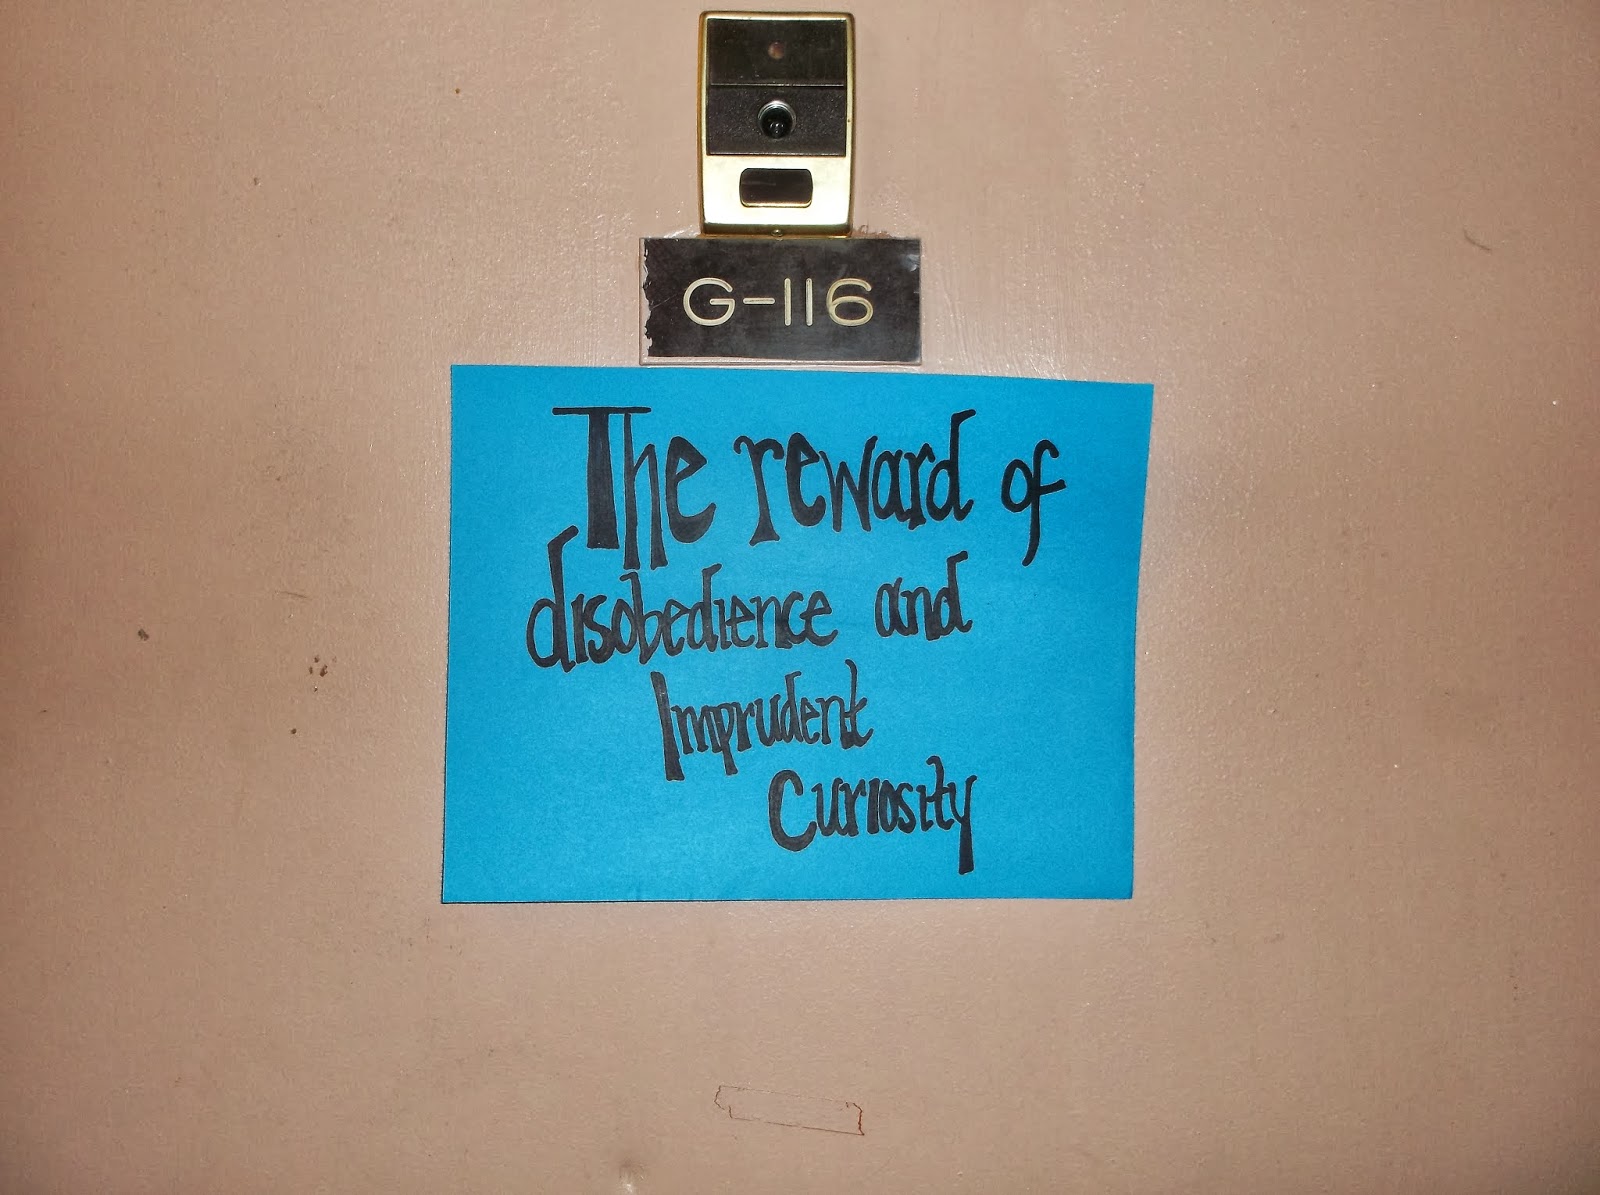 G-116
The reward of
disobedience and
Imprudent
Curiosity